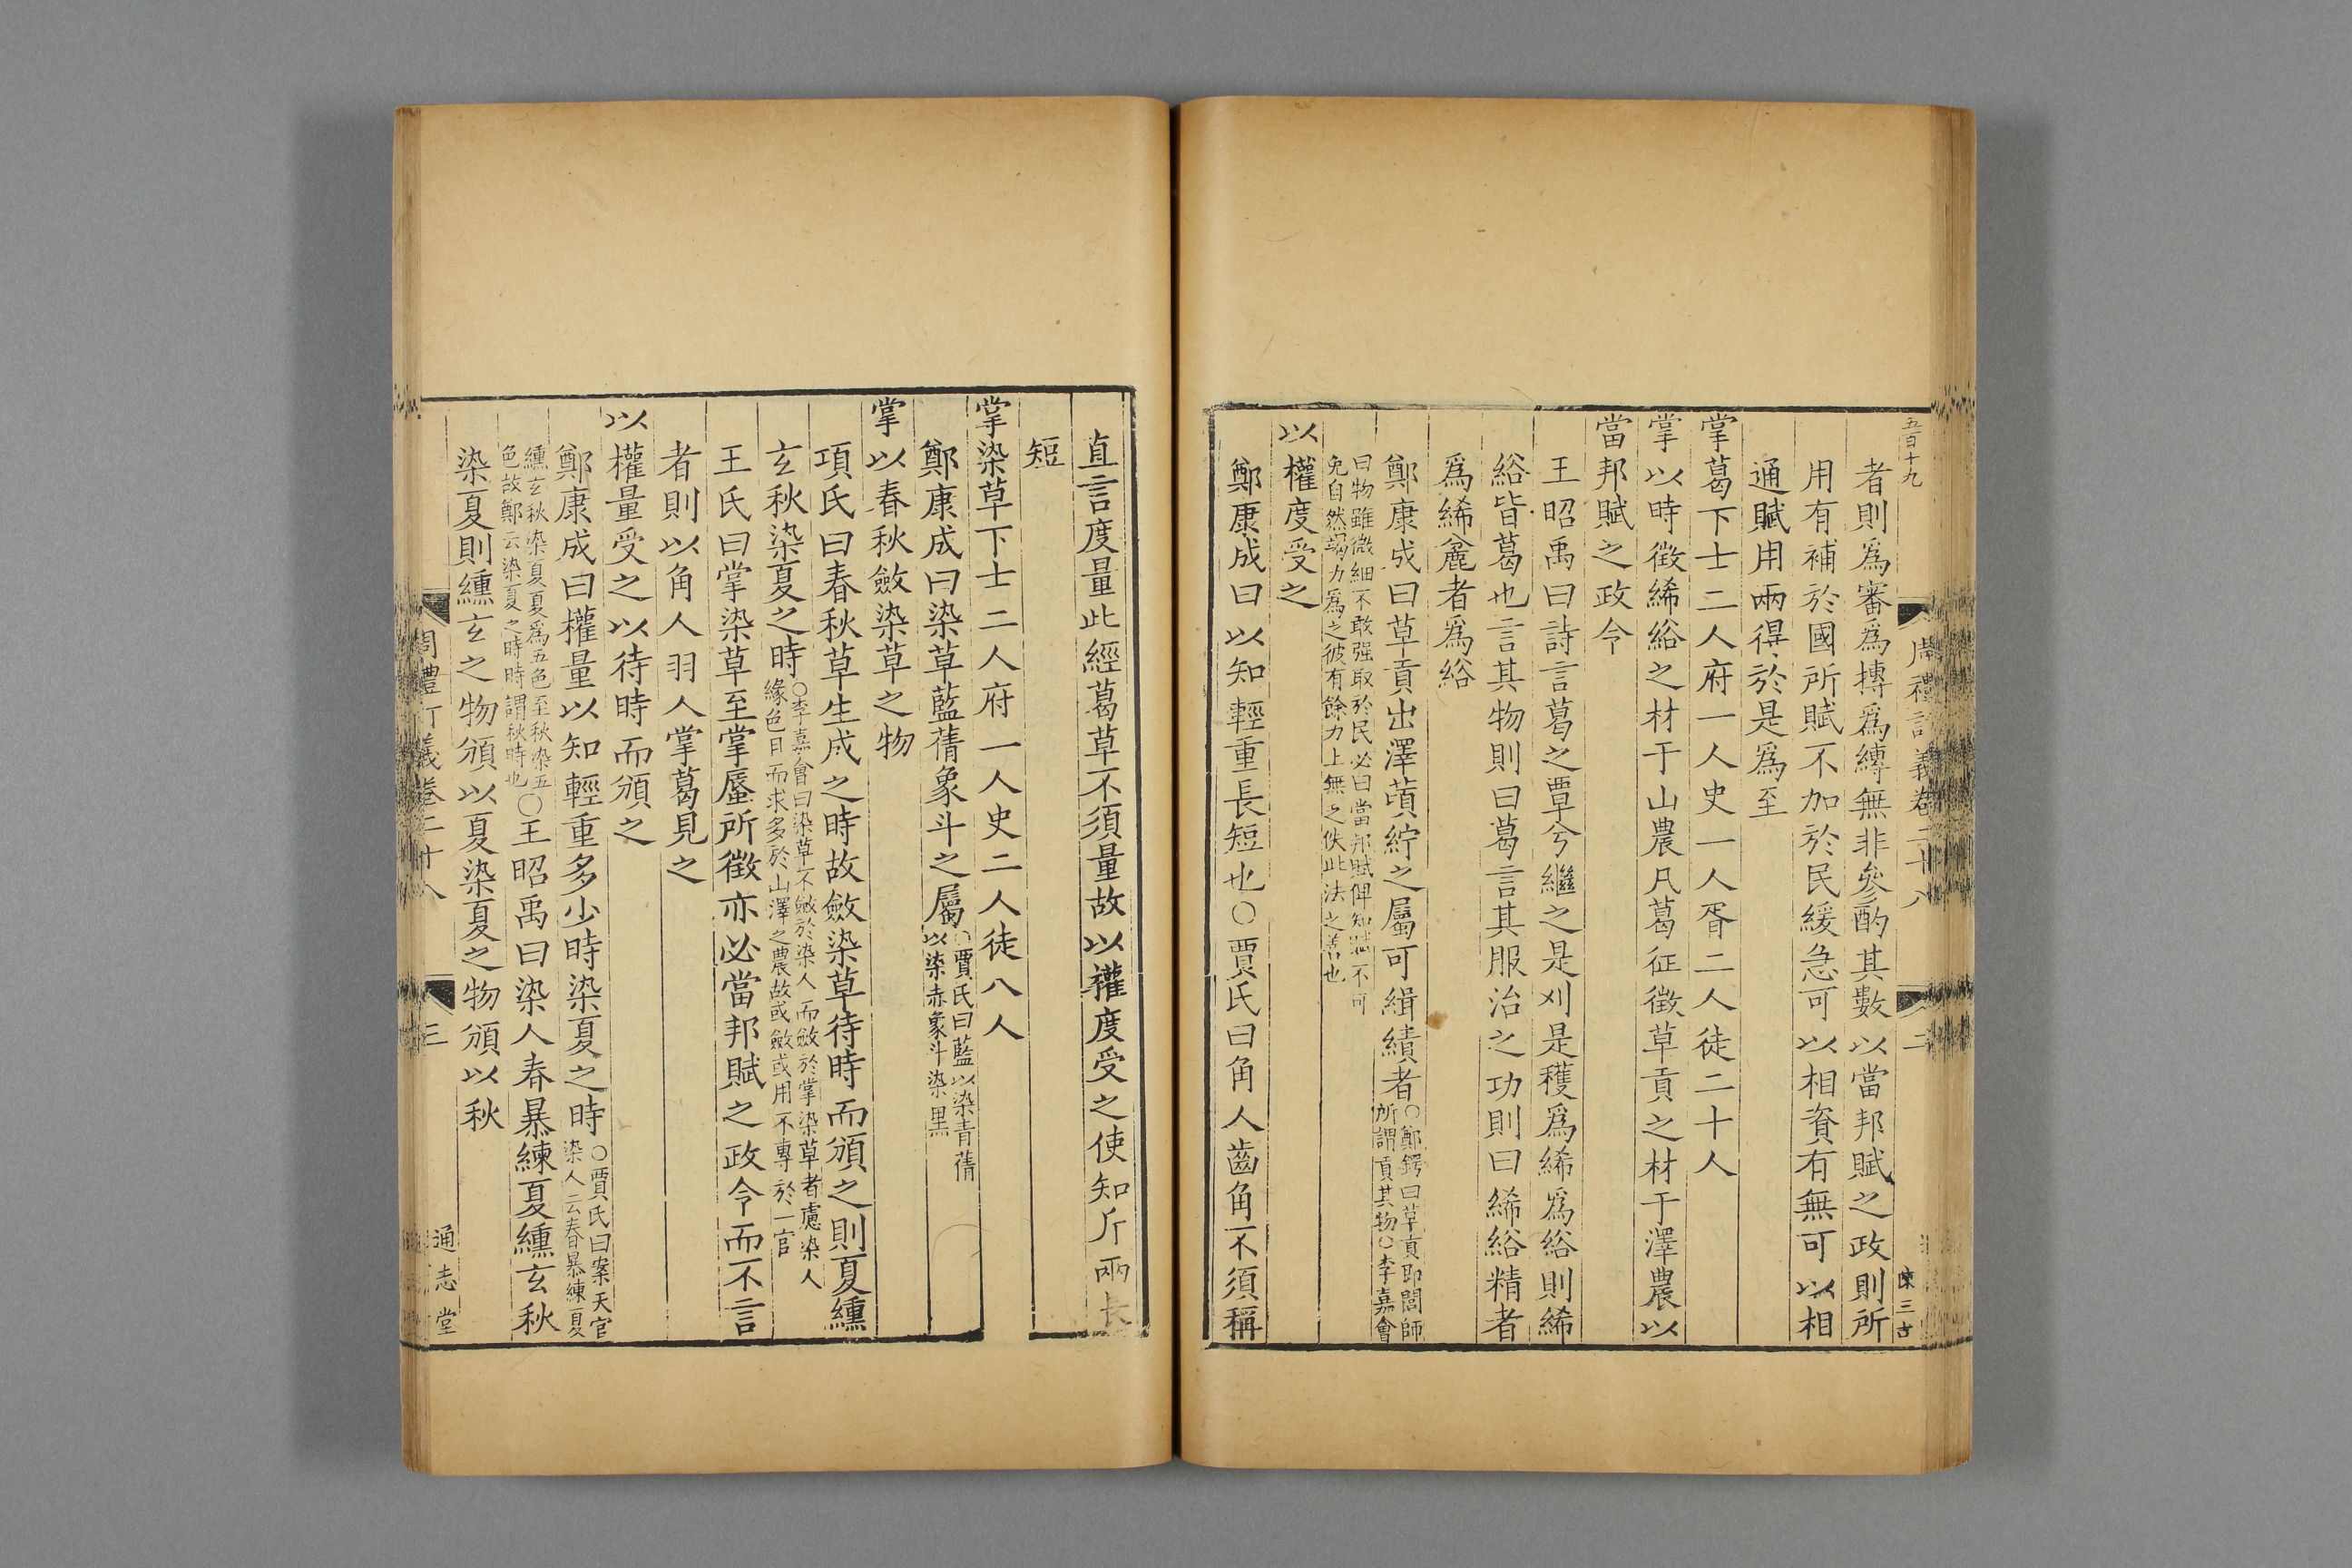 五百十九
周禮訂義卷二十八
二
者則爲審爲摶爲縳無非參酌其數以當邦賦之政則所
用有補於國所賦不加於民緩急可以相資有無可以相
通賦用兩得於是爲至
掌葛下士二人府一人史一人胥二人徒二十人
掌以時徵絺綌之材于山農凡葛征徵草貢之材于澤農以
當邦賦之政令
王昭禹曰詩言葛之覃兮繼之是刈是穫爲絺爲綌則絺
綌皆葛也言其物則曰葛言其服治之功則曰絺綌精者
爲絺麄者爲綌
鄭康成曰草貢出澤萯紵之屬可緝績者
○鄭鍔曰草貢即閭師
所謂貢其物○李嘉會
曰物雖微細不敢强取於民必曰當邦賦俾知賦不可
免自然竭力爲之彼有餘力上無之佚此法之善也
以權度受之
鄭康成曰以知輕重長短也○賈氏曰角人齒角不須稱
直言度量此經葛草不須量故以權度受之使知斤兩長
短
掌染草下士二人府一人史二人徒八人
鄭康成曰染草藍蒨象斗之屬
○賈氏曰藍以染青蒨
以染赤象斗染黑
掌以春秋斂染草之物
項氏曰春秋草生成之時故斂染草待時而頒之則夏纁
玄秋染夏之時
○李嘉會曰染草不斂於染人而斂於掌染草者慮染人
緣色目而求多於山澤之農故或斂或用不專於一官
王氏曰掌染草至掌蜃所徵亦必當邦賦之政令而不言
者則以角人羽人掌葛見之
以權量受之以待時而頒之
鄭康成曰權量以知輕重多少時染夏之時
○賈氏曰案天官
染人云春暴練夏
纁玄秋染夏夏爲五色至秋染五
色故鄭云染夏之時時謂秋時也
○王昭禹曰染人春暴練夏纁玄秋
染夏則纁玄之物頒以夏染夏之物頒以秋
周禮訂義卷二十八
三
通志堂